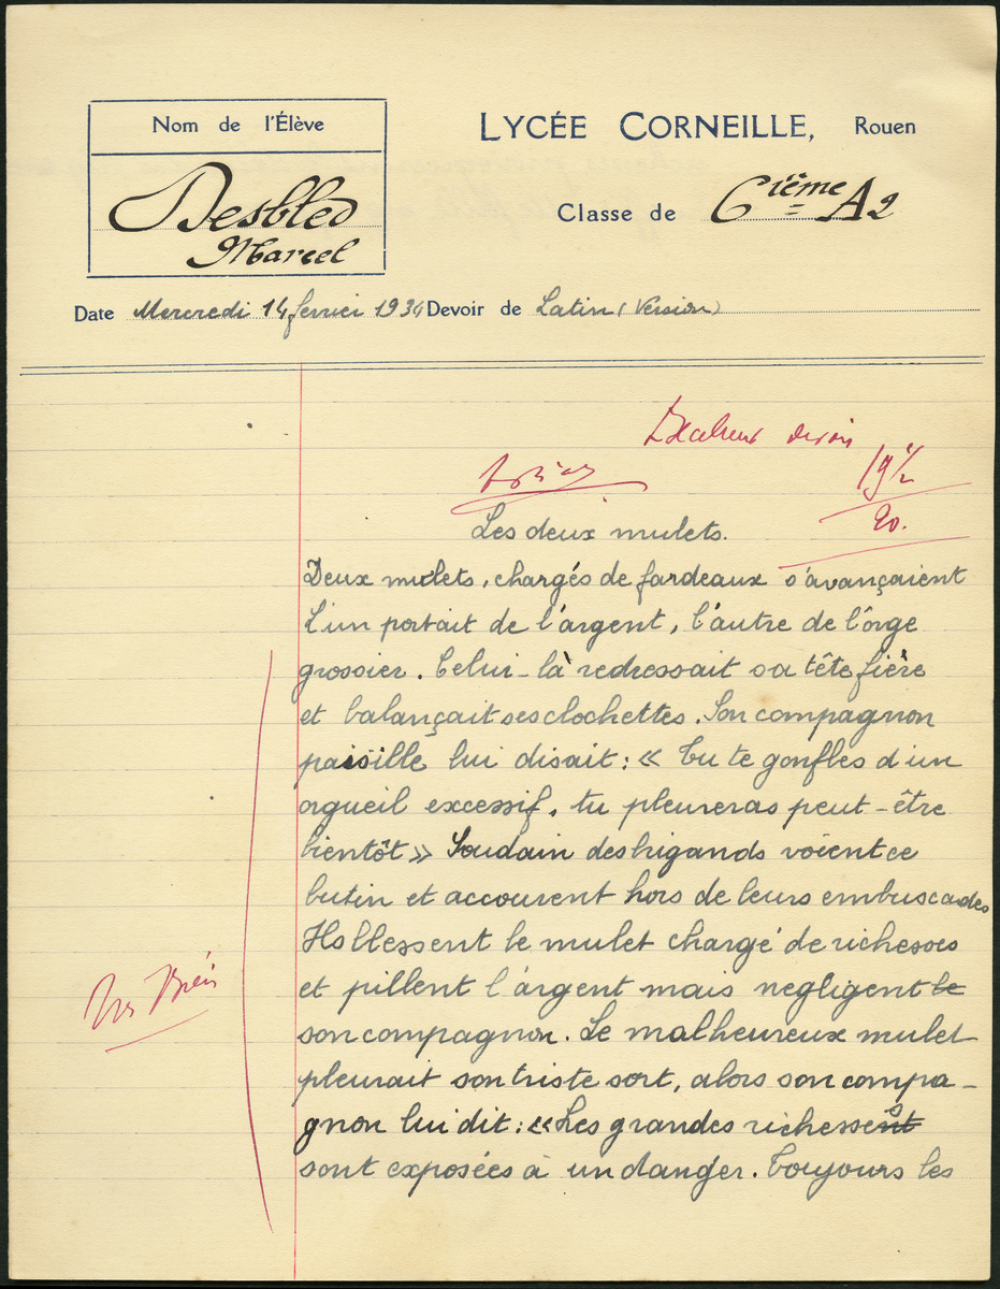 Nom de l'Élève
Desbled
Marcel
LYCÉE CORNEILLE, Rouen
Classe de 6ième A2
Date Mercredi 14 fevrier 1934 Devoir de Latin (Version)
Excellent devoir
19 1/2
20.
Les deux mulets.
Deux mulets, chargés de fardeaux s'avançaient
L'un portait de l'argent, l'autre de l'orge
grossier. Celui-là redressait sa tête fière
et balançait ses clochettes. Son compagnon
paisible lui disait : « Tu te gonfles d'un
orgueil excessif, tu pleureras peut-être
bientôt » Soudain des brigands voient ce
butin et accourent hors de leurs embuscades
Ils blessent le mulet chargé de richesses
et pillent l'argent mais negligent le
son compagnon. Le malheureux mulet
pleurait son triste sort, alors son compa-
gnon lui dit : « Les grandes richesses
sont exposées à un danger. Toujours les
Très Bien